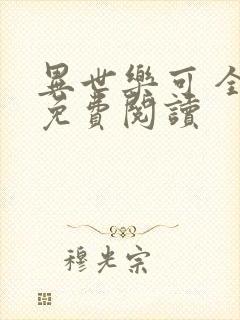 異世樂可全
免費閱讀
穆光宗